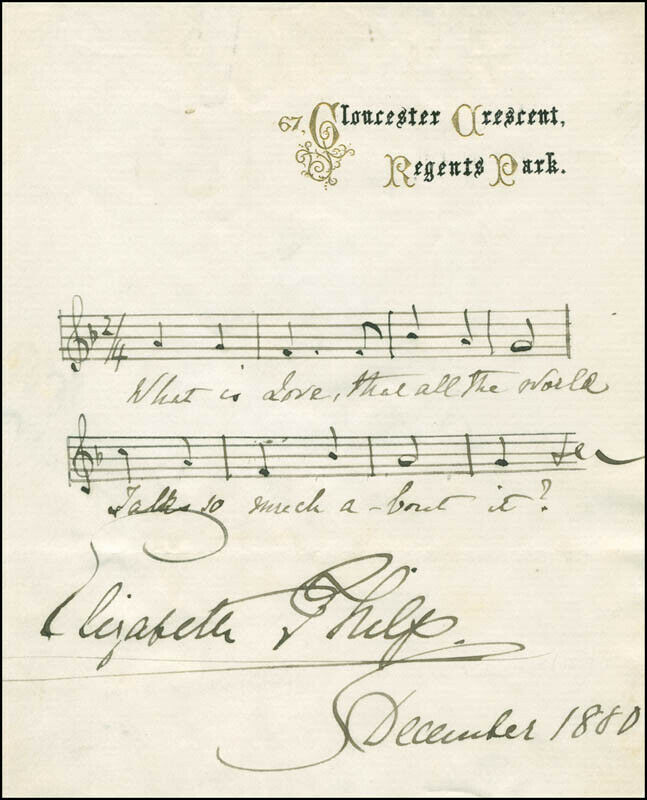 67, Gloucester Crescent,
Regents Park.
2/4
What is Love, that all the world
Talks so much a-bout it?
Elizabeth Philp.
December 1880